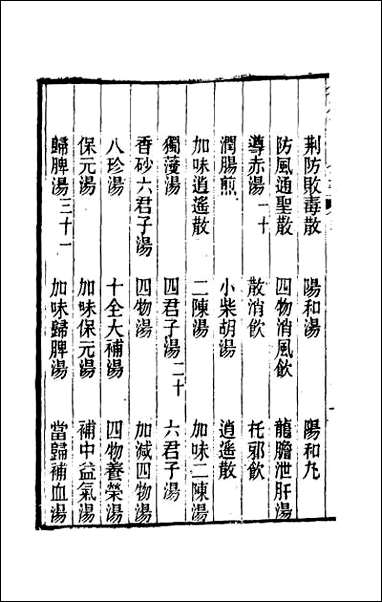 荆防敗毒散　陽和湯　陽和丸
防風通聖散　四物消風飲　龍膽泄肝湯
導赤湯一十　散消飲　托邪飲
潤腸煎　小柴胡湯　逍遥散
加味逍遥散　二陳湯　加味二陳湯
獨葠湯　四君子湯二十　六君子湯
香砂六君子湯　四物湯　加減四物湯
八珍湯　十全大補湯　四物養榮湯
保元湯　加味保元湯　補中益氣湯
歸脾湯三十一　加味歸脾湯　當歸補血湯